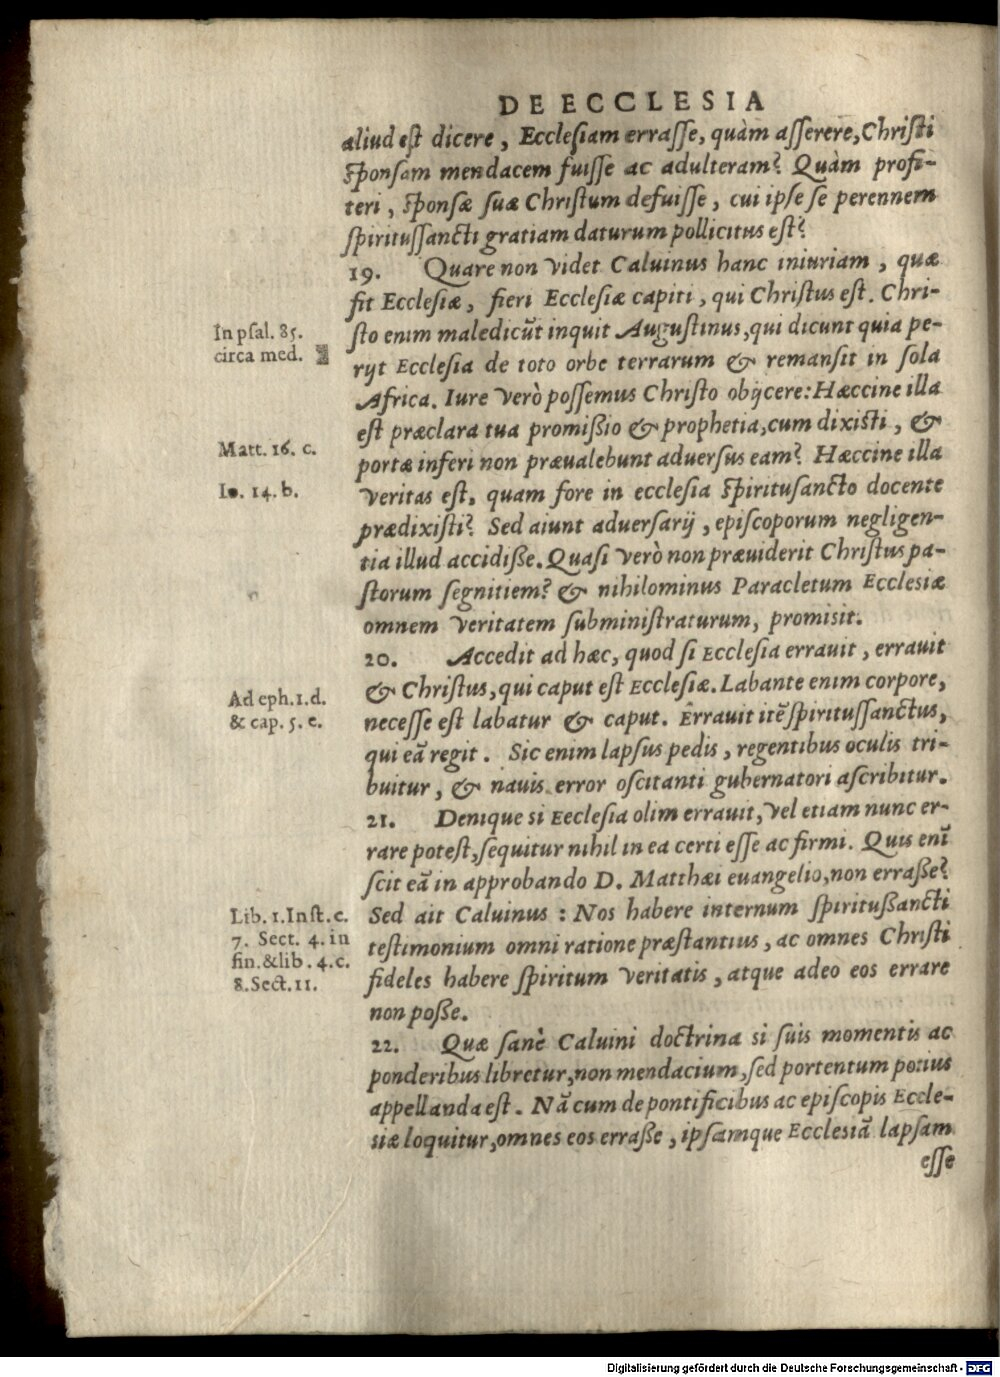 DE ECCLESIA
aliud est dicere, Ecclesiam errasse, quàm asserere, Christi
sponsam mendacem fuisse ac adulteram? Quàm profi-
teri, sponsæ suæ Christum defuisse, cui ipse se perennem
spiritussancti gratiam daturum pollicitus est?
19. Quare non videt Caluinus hanc iniuriam, quæ
fit Ecclesiæ, fieri Ecclesiæ capiti, qui Christus est. Chri-
In psal. 85.
circa med.
sto enim maledicũt inquit Augustinus, qui dicunt quia pe-
rijt Ecclesia de toto orbe terrarum & remansit in sola
Africa. Iure verò possemus Christo obijcere: Hæccine illa
est præclara tua promißio & prophetia, cum dixisti, &
Matt. 16. c.
portæ inferi non præualebunt aduersus eam? Hæccine illa
Io. 14. b.
veritas est, quam fore in ecclesia spiritusancto docente
prædixisti? Sed aiunt aduersarij, episcoporum negligen-
tia illud accidiße. Quasi verò non præuiderit Christus pa-
storum segnitiem? & nihilominus Paracletum Ecclesiæ
omnem veritatem subministraturum, promisit.
20. Accedit ad hæc, quod si Ecclesia errauit, errauit
& Christus, qui caput est Ecclesiæ. Labante enim corpore,
Ad eph. 1. d.
& cap. 5. e.
necesse est labatur & caput. Errauit itẽ spiritussanctus,
qui eã regit. Sic enim lapsus pedis, regentibus oculis tri-
buitur, & nauis error oscitanti gubernatori ascribitur.
21. Denique si Ecclesia olim errauit, vel etiam nunc er-
rare potest, sequitur nihil in ea certi esse ac firmi. Quis enĩ
scit eã in approbando D. Matthæi euangelio, non erraße?
Lib. 1. Inst. c.
7. Sect. 4. in
fin. & lib. 4. c.
8. Sect. 11.
Sed ait Caluinus: Nos habere internum spiritußancti
testimonium omni ratione præstantius, ac omnes Christi
fideles habere spiritum veritatis, atque adeo eos errare
non poße.
22. Quæ sanè Caluini doctrina si suis momentis ac
ponderibus libretur, non mendacium, sed portentum potius
appellanda est. Nã cum de pontificibus ac episcopis Eccle-
siæ loquitur, omnes eos erraße, ipsamque Ecclesiã lapsam
esse
Digitalisierung gefördert durch die Deutsche Forschungsgemeinschaft - DFG